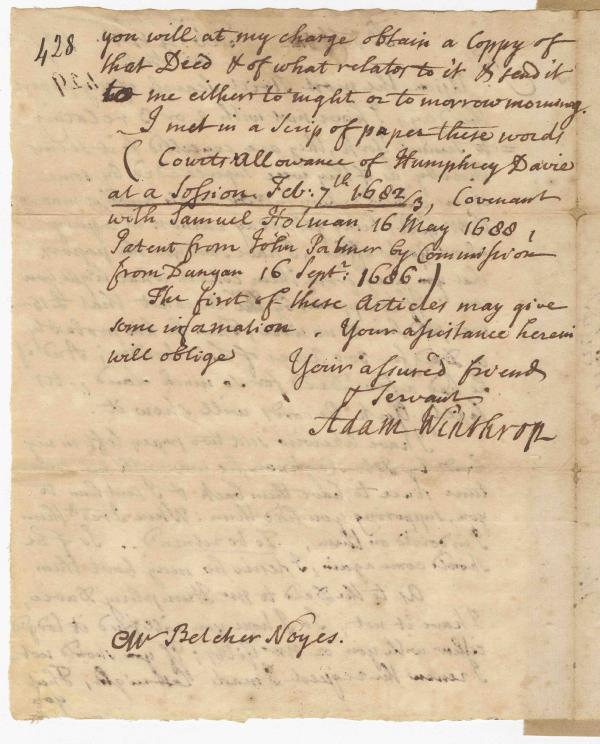 428
you will at my charge obtain a Coppy of
that Deed & of what relates to it & send it
to me either to night or to morrow morning.
I met in a Scrip of paper these words
( Courts allowance of Humphrey Davie
at a Session Feb: 7th 1682/3, Covenant
with Samuel Holman 16 May 1688,
Patent from John Palmer by Commission
from Dungan 16 Septr: 1686.)
The first of these Articles may give
some information. Your assistance herein
will oblige Your assured friend
& Servant
Adam Winthrop
Mr Belcher Noyes.